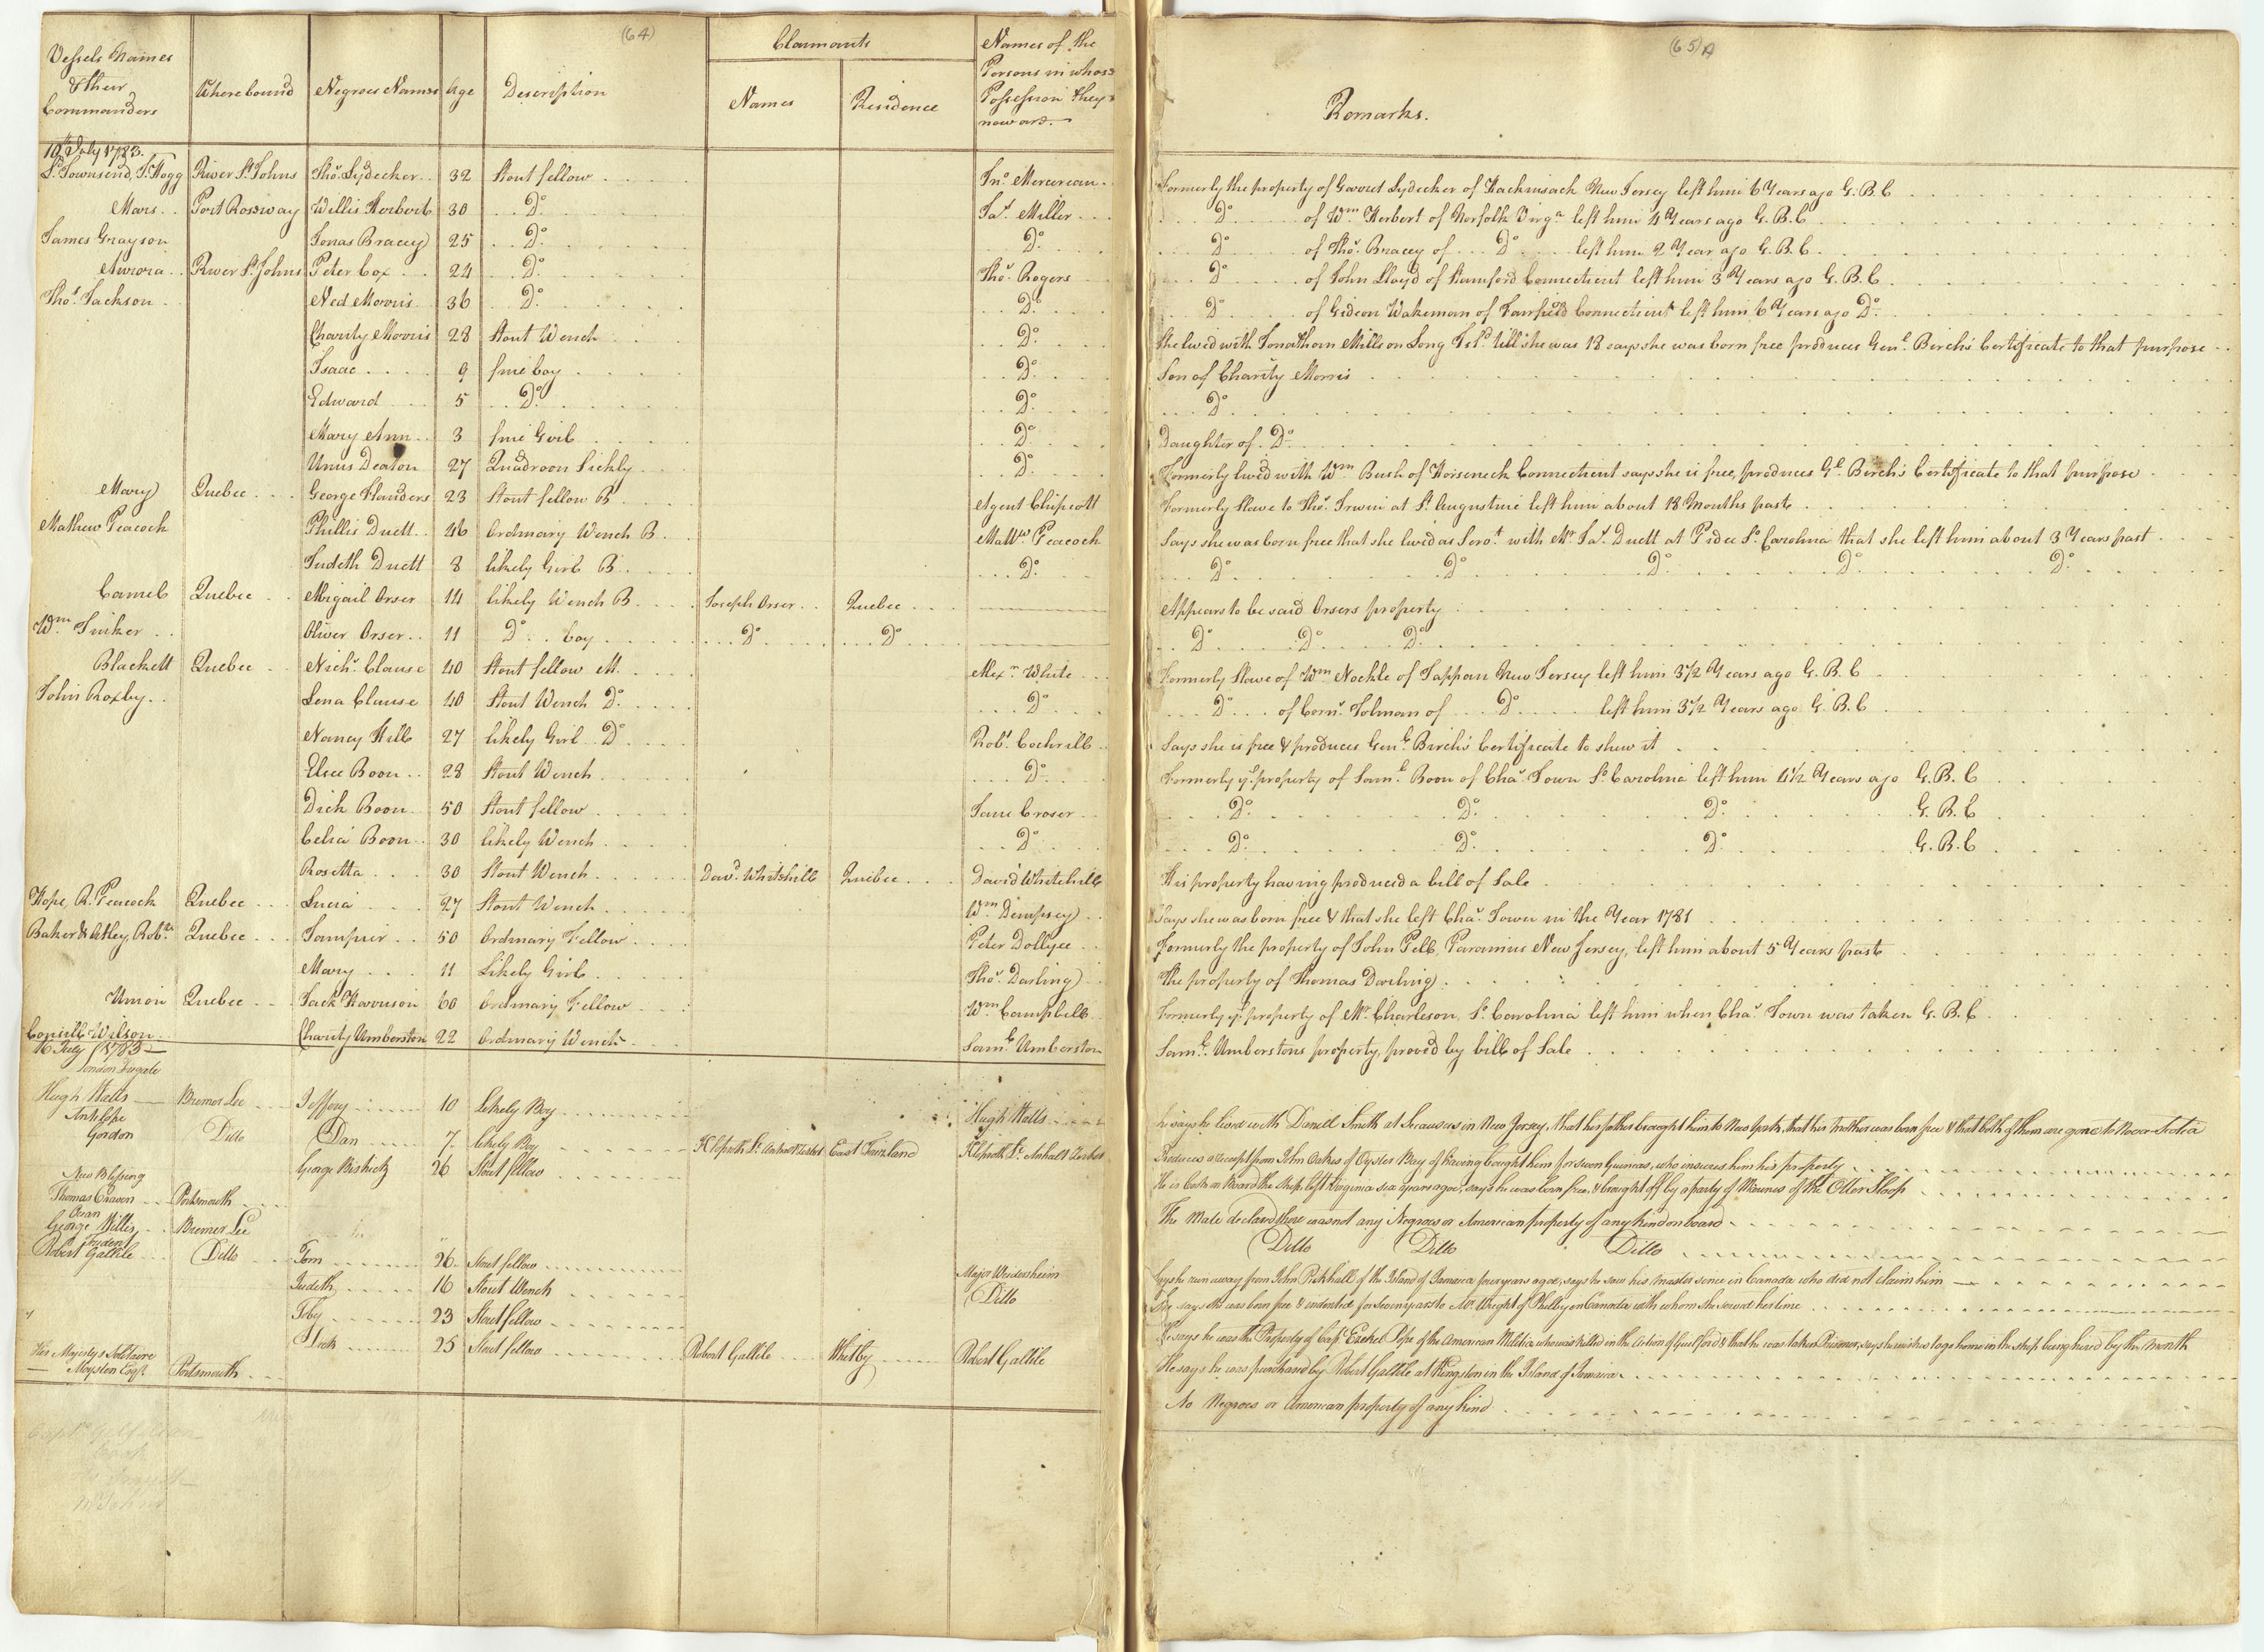 (64)
Vessels Names & their Commanders | Where bound | Negroes Names | Age | Description | Claimants Names | Residence | Names of the Persons in whose Possession they now are.
(65) A
Remarks.
10th July 1783.
Ld. Townsend, J. Hogg | River St. Johns | Thos. Lydecker | 32 | Stout fellow | Jno. Mercereau | Formerly the property of Garret Lydecker of Hackinsack New Jersey left him 6 Years ago G.B.C
Mars | Port Roseway | Willis Herbert | 30 | Do. | Jas. Miller | Do. of Wm. Herbert of Norfolk Virga. left him 4 Years ago G.B.C
James Grayson | Jonas Bracey | 25 | Do. | Do. | Do. of Thos. Bracey of Do. left him 2 Year ago G.B.C.
Aurora | River St. Johns | Peter Cox | 24 | Do. | Thos. Rogers | Do. of John Lloyd of Stamford Connecticut left him 3 Years ago G.B.C
Thos. Jackson | Ned Morris | 36 | Do. | Do. | Do. of Gideon Wakeman of Fairfield Connecticut left him 6 Years ago Do.
Charity Morris | 28 | Stout Wench | Do. | She lived with Jonathan Mills on Long Isld. till she was 18 says she was born free produces Genl. Birch's Certificate to that purpose
Isaac | 9 | fine boy | Do. | Son of Charity Morris
Edward | 5 | Do. | Do. | Do.
Mary Ann | 3 | fine Girl | Do. | Daughter of Do.
Unus Deaton | 27 | Quadroon Sickly | Do. | Formerly lived with Wm. Bush of Horseneck Connecticut says she is free, produces Gl. Birch's Certificate to that purpose
Mary | Quebec | George Flanders | 23 | Stout fellow B | Agent Chipcott | Formerly Slave to Thos. Irwin at St. Augustine left him about 18 Months past
Mathew Peacock | Phillis Duett | 46 | Ordinary Wench B | Mattw. Peacock | Says she was born free that she lived as Servt. with Mr. Jas. Duett at Pidee So. Carolina that she left him about 3 Years past
Judeth Duett | 8 | likely Girl B | Do. | Do. Do. Do. Do. Do.
Camel | Quebec | Abigail Orser | 14 | likely Wench B | Joseph Orser | Quebec | Appears to be said Orsers property
Wm. Tinker | Oliver Orser | 11 | Do. boy | Do. | Do. | Do. Do. Do.
Blackett | Quebec | Nichs. Clause | 40 | Stout fellow M. | Alexr. White | Formerly Slave of Wm. Nockle of Tappan New Jersey left him 3 1/2 Years ago G.B.C
John Roxby | Lena Clause | 40 | Stout Wench Do. | Do. | Do. of Corns. Tolman of Do. left him 3 1/2 Years ago G.B.C
Nancy Hill | 27 | likely Girl Do. | Robt. Cochrill | Says she is free & produces Genl. Birch's Certificate to shew it
Elsee Boon | 28 | Stout Wench | Do. | Formerly ye. property of Saml. Boon of Chas. Town So. Carolina left him 4 1/2 Years ago G.B.C
Dick Boon | 50 | Stout fellow | Jane Croser | Do. Do. Do. G.B.C
Celia Boon | 30 | likely Wench | Do. | Do. Do. Do. G.B.C
Rosetta | 30 | Stout Wench | Davd. Whitehill | Quebec | David Whitehill | His property having produced a bill of Sale
Hope, R. Peacock | Quebec | Lucia | 27 | Stout Wench | Wm. Dempsey | Says she was born free & that she left Chas. Town in the Year 1781
Baker & Atley, | Quebec | 50 | Ordinary Fellow | Peter Dollyee | Formerly the property of John Pell, Paramus New Jersey, left him about 5 Years past
Mary | 11 | Likely Girl | Thos. Darling | The property of Thomas Darling
Union | Quebec | Jack Harrison | 60 | Ordinary Fellow | Wm. Campbell | Formerly ye. property of Mr. Charleson, So. Carolina left him when Chas. Town was taken G.B.C
Wilson | Charity Umberston | 22 | Ordinary Wench | Saml. Umberston | Saml. Umberstons property, proved by bill of Sale
16 July 1783
London Frigate
Hugh Walls | Bremer Lee | Jeffery | 10 | Likely Boy | Hugh Walls | he says he lived with Daniel Smith at Secausus in New Jersey, that his father brought him to New York, that his mother was born free & that both of them are gone to Nova Scotia
Antilope
Gordon | Ditto | Dan | 7 | likely Boy | East Friezland | Produces a receipt from John Oakes of Oyster Bay of having bought him for seven Guineas, who insures him his property
George | 26 | Stout fellow | He is Cook on Board the Ship, left Virginia six years ago, says he was born free, & brought off by a party of Marines of the Otter Sloop
New Blessing
Thomas Craven | Portsmouth | The Mate declared there was not any Negroes or American property of any kind on board
Ocean
George Willis | Bremer Lee | Ditto Ditto Ditto
Trident
Robert Gallile | Ditto | Tom | 26 | Stout fellow | Major Weidersheim | Says he run away from John Pickhall of the Island of Jamaica four years ago, says he saw his master since in Canada who did not claim him
Judeth | 16 | Stout Wench | Ditto | She says she was born free & indented for Seven years to Mr. Wright of Phelby on Canada with whom she served her time
Toby | 23 | Stout fellow | He says he was the Property of Capt. Ezekel Pope of the American Militia who was killed in the Action of Guilford & that he was taken Prisoner, says he wishes to go home in the ship being hired by the month
25 | Stout fellow | Robert Gallile | Whitby | Robert Gallile | He says he was purchased by Robert Gallile at Kingston in the Island of Jamaica
His Majestys Solitaire
Moyston Esqr. | Portsmouth | No Negroes or American property of any kind